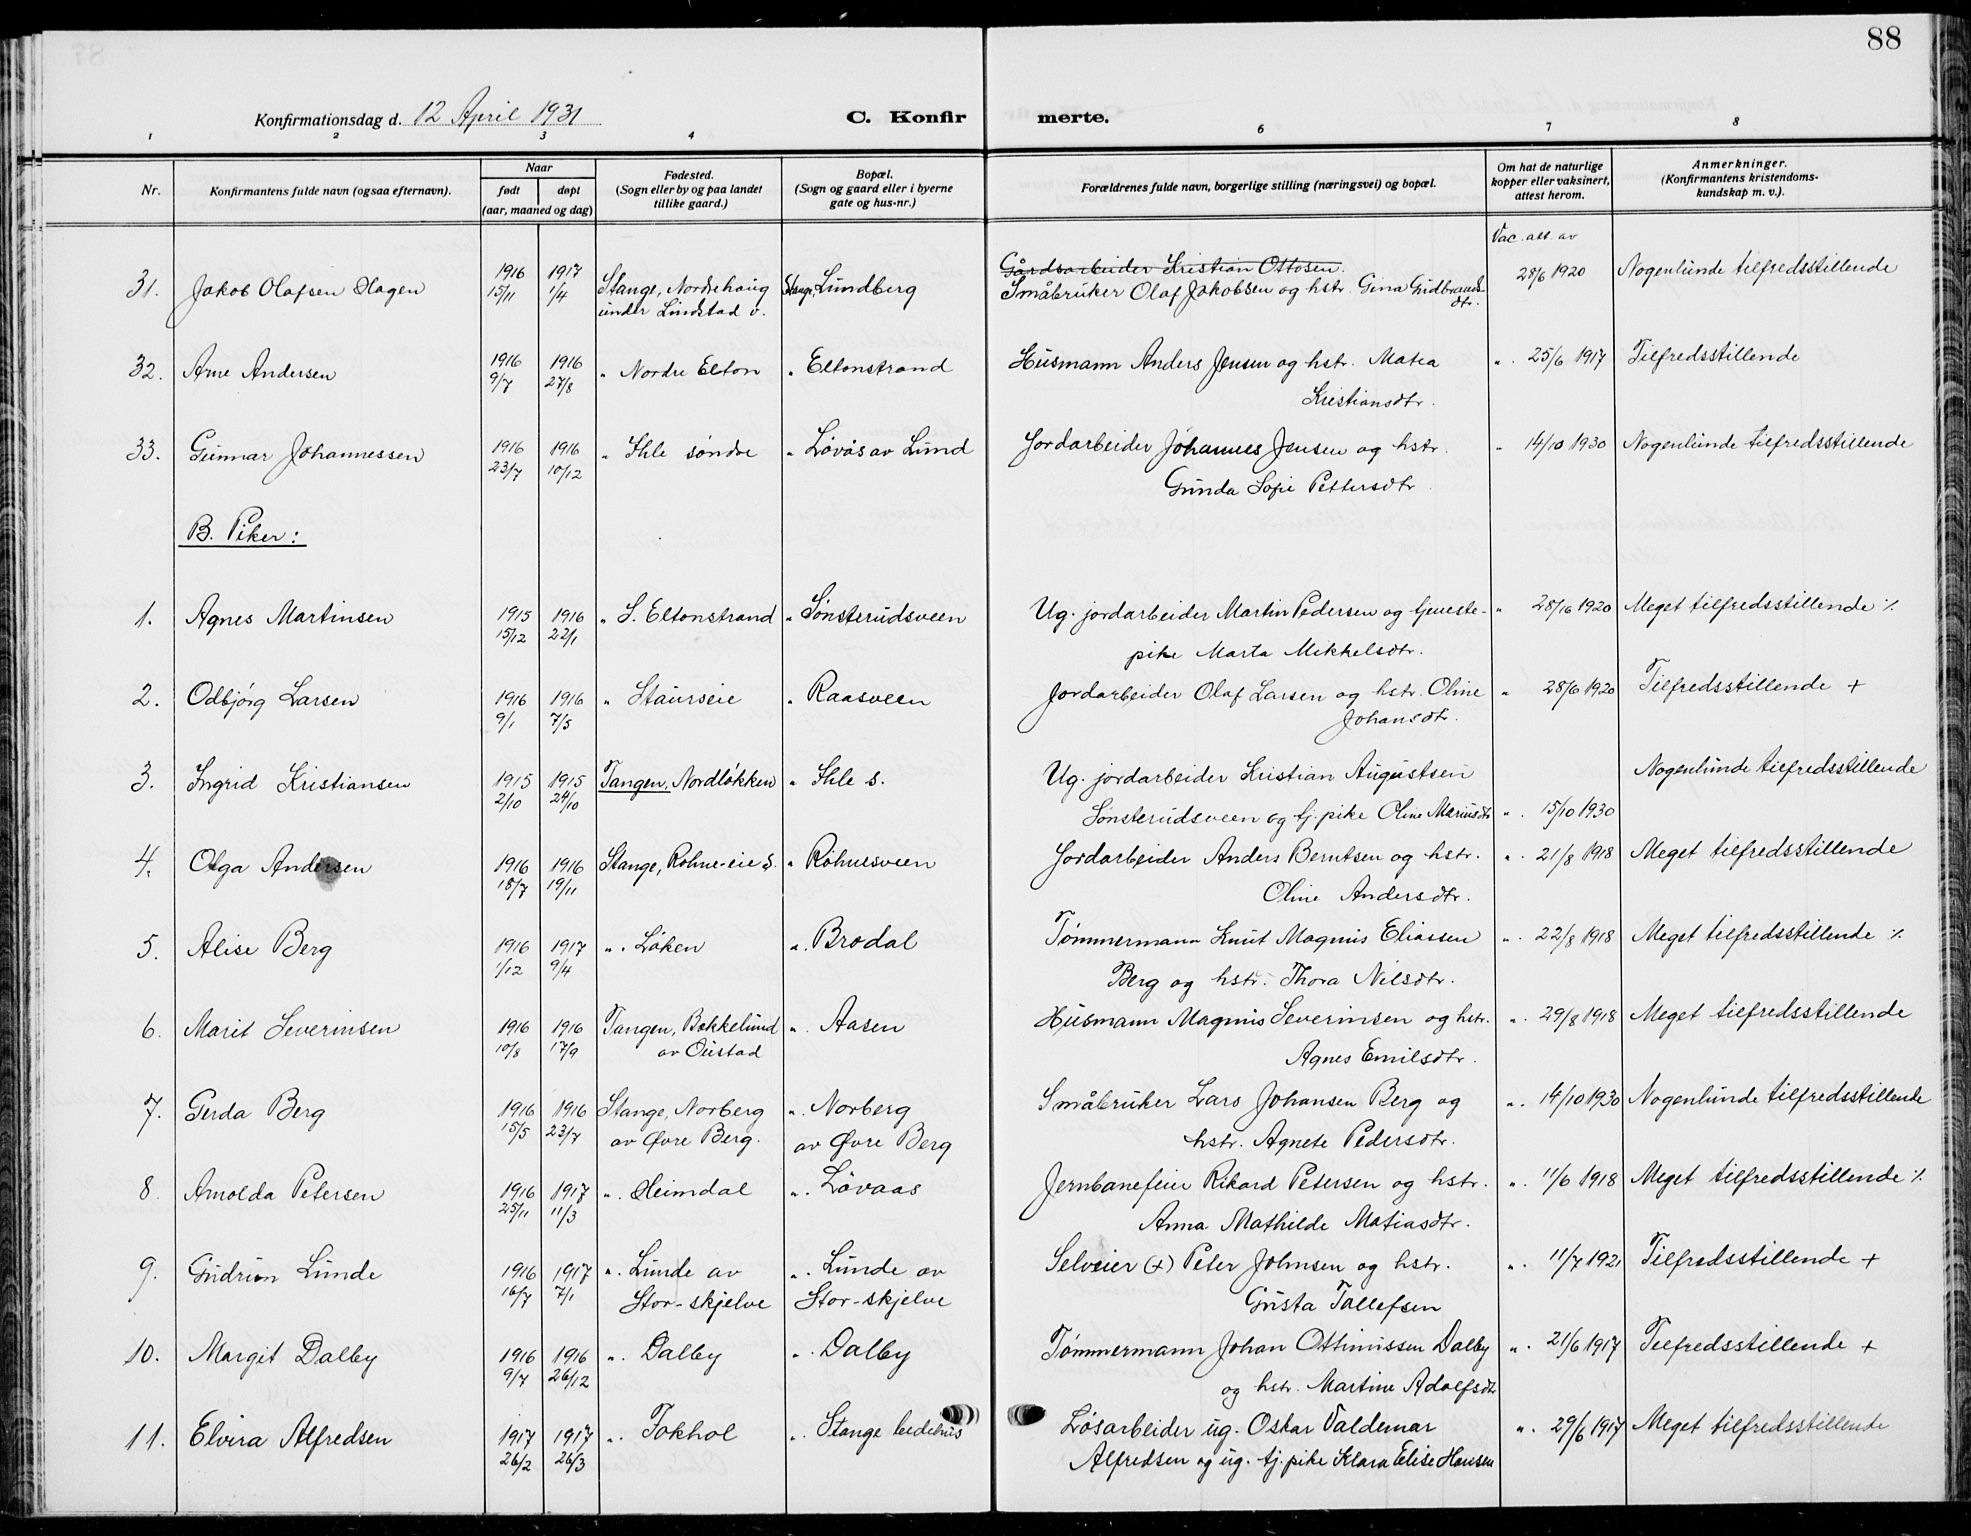 88
Konfirmationsdag d. 12 April 1931
C. Konfirmerte.
1 2 3 4 6 7 8
Nr.
Konfirmantens fulde navn (ogsaa efternavn).
Naar
født døpt
(aar, maaned og dag)
Fødested.
(Sogn eller by og paa landet
tillike gaard.)
Bopæl.
(Sogn og gaard eller i byerne
gate og hus-nr.)
Forældrenes fulde navn, borgerlige stilling (næringsvei) og bopæl.
Om hat de naturlige
kopper eller vaksinert,
attest herom.
Anmerkninger.
(Konfirmantens kristendoms-
kundskap m. v.).
Vac. att. av
Gårdsarbeider Kristian Ottosen.
31. Jakob Olafsen Hagen 1916 15/11 1917 1/4 Stange, Nordrehaug Stange, Lundberg Småbruker Olaf Jakobsen og hstr. Gina Gudbrands- 28/6 1920 Nogenlunde tilfredsstillende
under Lindstad v. dtr.
32. Arne Andersen 1916 9/7 1916 27/8 " Nordre Elton " Eltonstrand Husmann Anders Jensen og hstr. Matea " 25/6 1917 Tilfredsstillende
Kristiansdtr.
33. Gunnar Johannessen 1916 23/7 1916 10/12 " Ihle søndre " Løvås av Lund Jordarbeider Johannes Jensen og hstr. " 14/10 1930 Nogenlunde tilfredsstillende
Gunda Sofie Pettersdtr.
B. Piker:
1. Agnes Martinsen 1915 15/12 1916 22/1 " S. Eltonstrand " Sønsterudsveen Ug. jordarbeider Martin Pedersen og tjeneste- " 28/10 1920 Meget tilfredsstillende ./.
pike Marta Mikkelsdtr.
2. Odbjørg Larsen 1916 9/1 1916 7/5 " Staurseie " Raasveen Jordarbeider Olaf Larsen og hstr. Oline " 28/6 1920 Tilfredsstillende +
Johansdtr.
3. Ingrid Kristiansen 1915 2/10 1915 24/10 Tangen, Nordløkken " Ihle s. Ug. jordarbeider Kristian Augustsen Nogenlunde tilfredsstillende
Sønsterudsveen og tj. pike Oline Mariusdtr " 15/10 1930
4. Olga Andersen 1916 18/7 1916 19/11 Stange, Rohne-eie s. " Røhnesveen Jordarbeider Anders Berntsen og hstr. " 21/8 1918 Meget tilfredsstillende
Oline Andersdtr.
5. Alise Berg 1916 1/12 1917 9/4 " Løken " Brodal Tømmermann Knut Magnus Eliassen " 22/8 1918 Meget tilfredsstillende ./.
Berg og hstr. Thora Nilsdtr.
6. Marit Severinsen 1916 10/8 1916 17/9 Tangen, Bekkelund " Aasen Husmann Magnus Severinsen og hstr. " 29/8 1918 Meget tilfredsstillende
av Oustad Agnes Emilsdtr.
7. Gerda Berg 1916 15/5 1916 23/7 Stange, Norberg " Norberg Småbruker Lars Johansen Berg og " 14/10 1930 Nogenlunde tilfredsstillende
av Øvre Berg. av Øvre Berg hstr. Agnete Pedersdtr.
8. Arnolda Petersen 1916 25/11 1917 11/3 " Heimdal " Løvaas Jernbanefeier Rikard Petersen og hstr. " 11/6 1918 Meget tilfredsstillende ./.
Anna Mathilde Matiasdtr.
9. Gudrun Lunde 1916 16/7 1917 7/1 " Lunde av " Lunde av Selveier (+) Peter Johnsen og hstr. " 11/7 1921 Tilfredsstillende +
Stor-skjelve Stor-skjelve Gusta Tollefsen
10. Margit Dalby 1916 9/7 1916 26/12 " Dalby " Dalby Tømmermann Johan Ottinussen Dalby " 21/6 1917 Tilfredsstillende +
og hstr. Martine Adolfsdtr
11. Elvira Alfredsen 1917 26/2 1917 26/3 " Tokhol " Stange bedehus Løsarbeider ug. Oskar Valdemar " 29/6 1917 Meget tilfredsstillende
Alfredsen og ug. tj. pike Klara Elise Hansen